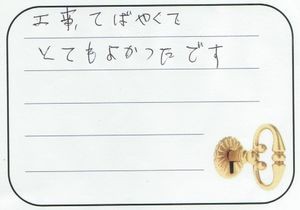 工事,てばやくて
とてもよかったです